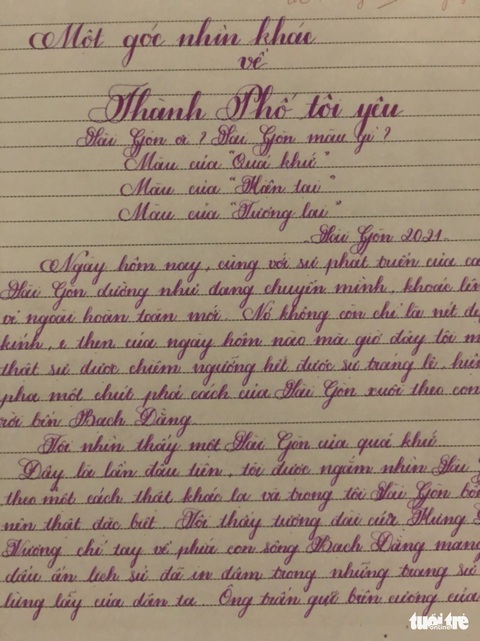 Một góc nhìn khác
về
Thành Phố tôi yêu
Sài Gòn ơi? Sài Gòn màu gì?
Màu của "Quá khứ"
Màu của "Hân tại"
Màu của "Tương lai"
Sài Gòn 2021.
Ngày hôm nay, cùng với sự phát triển của cả
Sài Gòn dường như đang chuyển mình, khoác lên
vẻ ngoài hoàn toàn mới. Nó không còn chỉ là nét
kính, e thẹn của ngày hôm nào mà giờ đây tôi
thật sự được chiêm ngưỡng hết được sự tráng lệ,
pha một chút phá cách của Sài Gòn xuôi theo con
rời bến Bạch Đằng.
Tôi nhìn thấy một Sài Gòn của quá khứ.
Đây là lần đầu tiên, tôi được ngắm nhìn Sài
theo một cách thật khác lạ và trong tôi Sài Gòn
nên thật đặc biệt. Tôi thấy tượng đài cửa Hưng
Vương chỉ tay về phía con sông Bạch Đằng mang
dấu ấn lịch sử đã in đậm trong những trang sử
lừng lẫy của dân ta. Ông trấn giữ biên cương của
tuổi trẻ
online